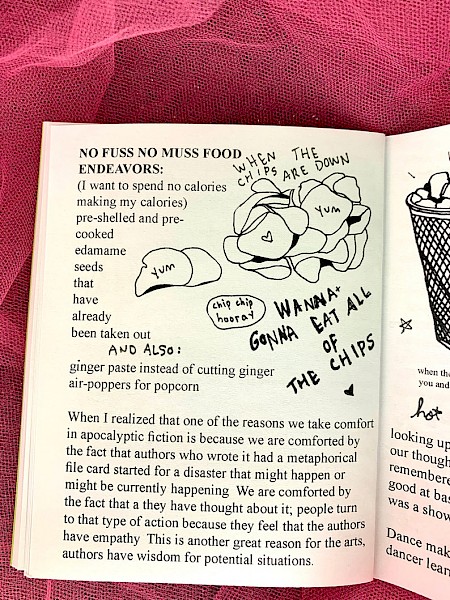 NO FUSS NO MUSS FOOD
ENDEAVORS:
(I want to spend no calories
making my calories)
pre-shelled and pre-
cooked
edamame
seeds
that
have
already
been taken out
WHEN THE
CHIPS ARE DOWN
YUM
YUM
chip chip
hooray
WANNA+
GONNA EAT ALL
OF
THE CHIPS
AND ALSO:
ginger paste instead of cutting ginger
air-poppers for popcorn
When I realized that one of the reasons we take comfort
in apocalyptic fiction is because we are comforted by
the fact that authors who wrote it had a metaphorical
file card started for a disaster that might happen or
might be currently happening We are comforted by
the fact that a they have thought about it; people turn
to that type of action because they feel that the authors
have empathy This is another great reason for the arts,
authors have wisdom for potential situations.
when the
you and
hot
looking up
our though
remembere
good at bas
was a show
Dance mak
dancer lear